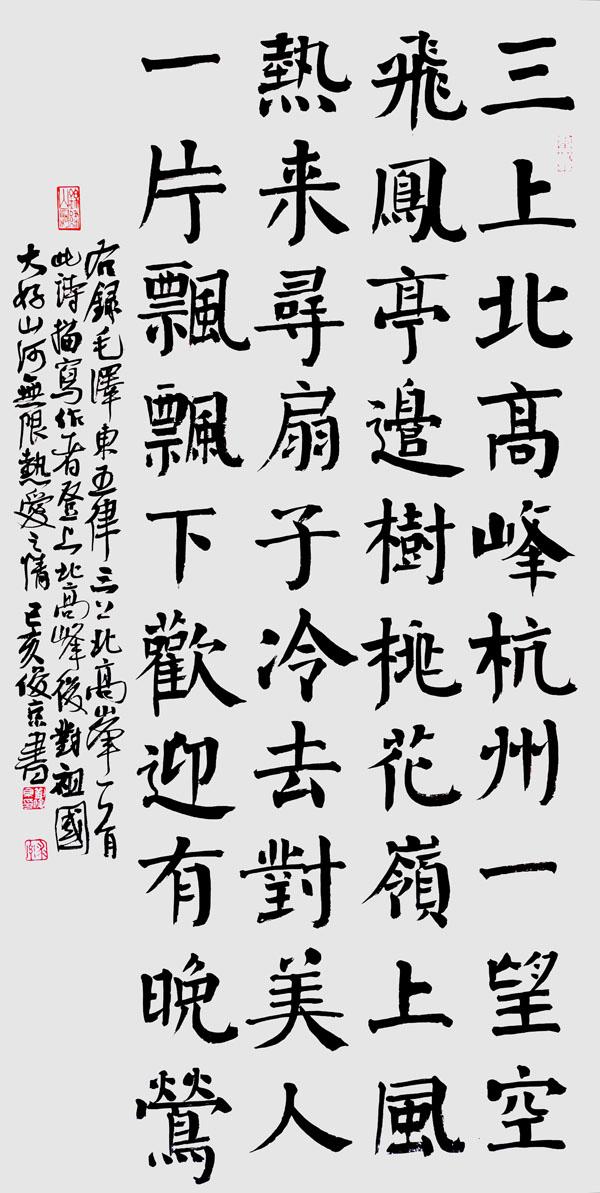 三上北高峰杭州一望空
飛鳳亭邉樹桃花嶺上風
熱来尋扇子冷去對美人
一片飄飄下歡迎有晚鶯
右録毛澤東五律三上北高峰一首
此詩描寫作者登上北高峰後對祖國
大好山河無限熱愛之情己亥俊京書